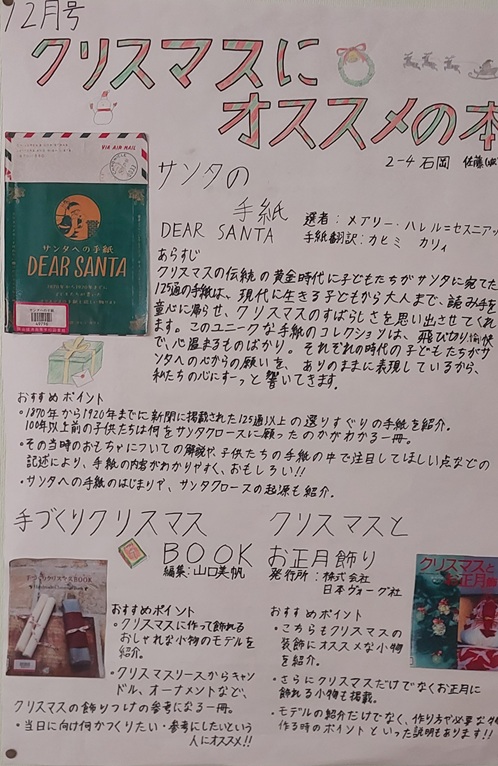 12月号
クリスマスに
オススメの本
2-4 石岡 佐藤
VIA AIR MAIL
サンタへの手紙
DEAR SANTA
サンタの
手紙
DEAR SANTA
選者：メアリー・ハレル=セスニアッ
手紙翻訳：カヒミ カリィ
あらすじ
クリスマスの伝統の黄金時代に子どもたちがサンタに宛てた
125通の手紙は、現代に生きる子どもから大人まで、読み手を
童心に帰らせ、クリスマスのすばらしさを思い出させてくれ
ます。このユニークな手紙のコレクションは、飛び切り愉快
で、心温まるものばかり。それぞれの時代の子どもたちがサ
ンタへの心からの願いを、ありのままに表現しているから、
私たちの心にすーっと響いてきます。
おすすめポイント
・1870年から1920年までに新聞に掲載された125通以上の選りすぐりの手紙を紹介。
100年以上前の子供たちは何をサンタクロースに願ったのかがわかる一冊。
・その当時のおもちゃについての解説や、子供たちの手紙の中で注目してほしい点などの
記述により、手紙の内容がわかりやすく、おもしろい!!
・サンタへの手紙のはじまりや、サンタクロースの起源も紹介。
手づくりクリスマス
BOOK
編集：山口美帆
手づくりクリスマスBOOK
おすすめポイント
・クリスマスに作って飾れる
おしゃれな小物のモデルを
紹介。
・クリスマスリースからキャ
ンドル、オーナメントなど、
クリスマスの飾りつけの参考になる一冊。
・当日に向け何かつくりたい・参考にしたいという
人にオススメ!!
クリスマスと
お正月飾り
発行所：株式会社
日本ヴォーグ社
クリスマスと
お正月
おすすめポイント
・こちらもクリスマスの
装飾にオススメな小物
を紹介。
・さらにクリスマスだけでなくお正月に
飾れる小物も掲載。
・モデルの紹介だけでなく、作り方や必要な
作る時のポイントといった説明もあります!!